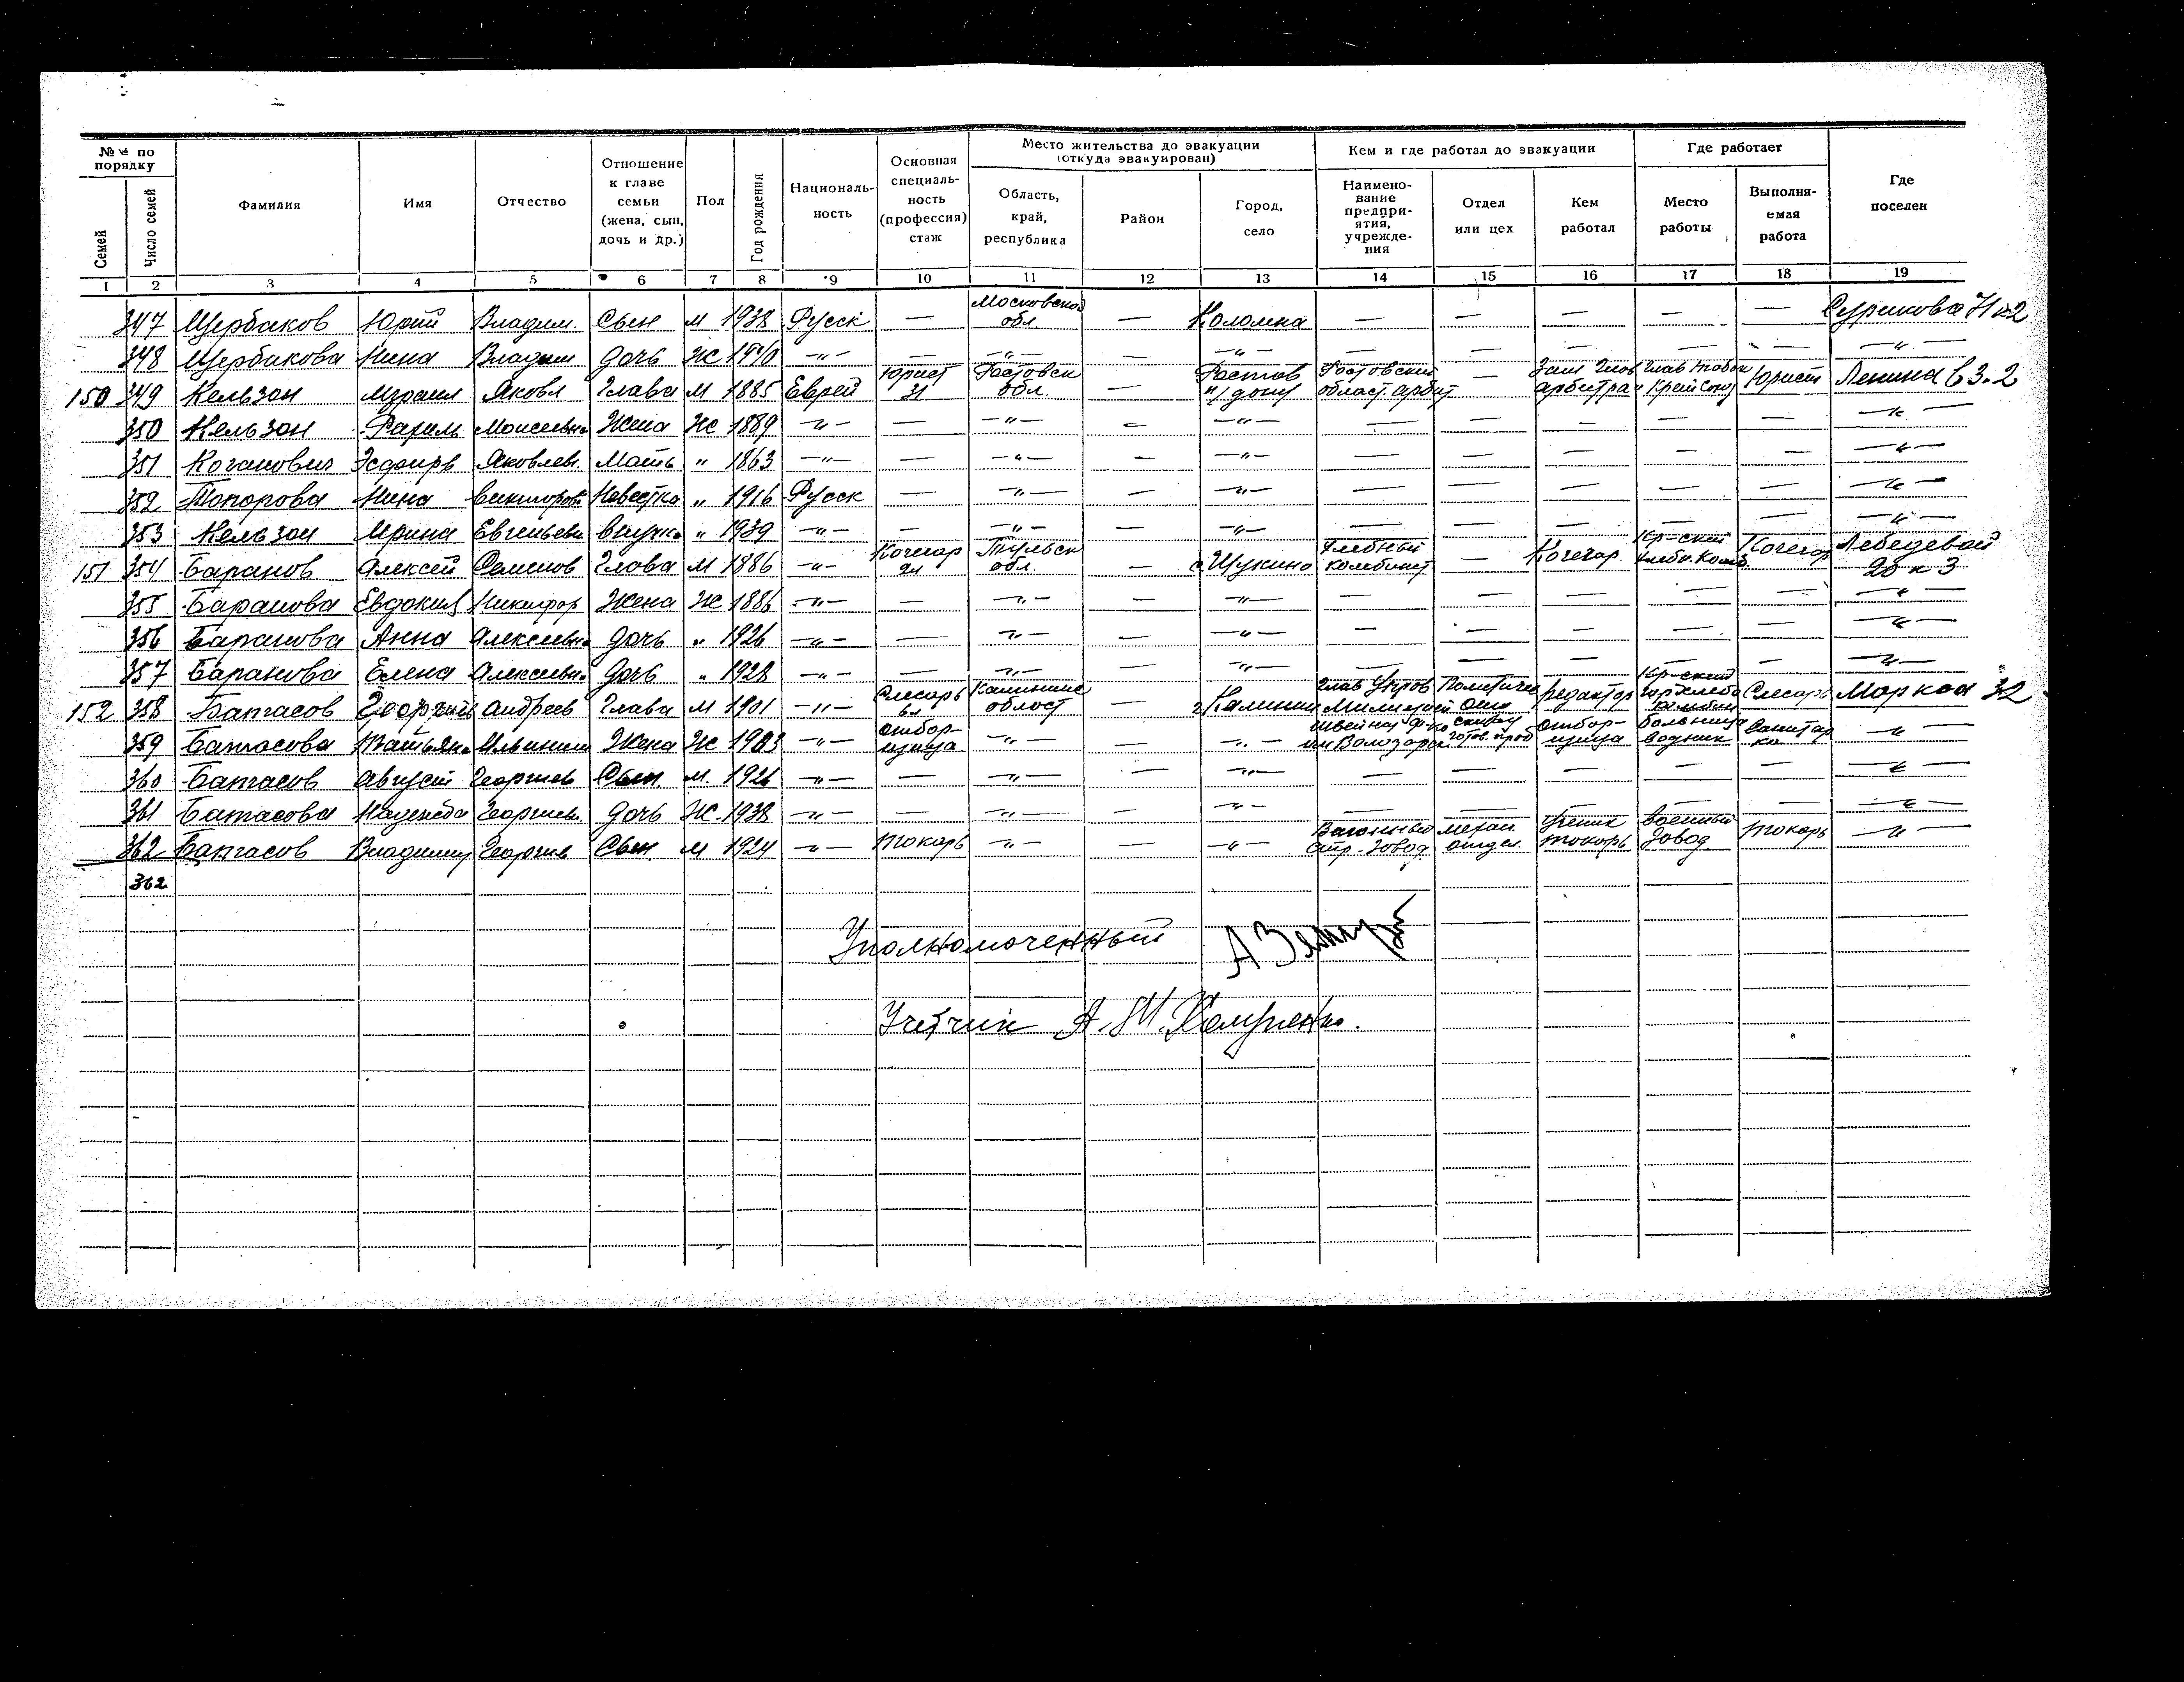 №№ по порядку
Семей
Число семей
Фамилия
Имя
Отчество
Отношение к главе семьи (жена, сын, дочь и др.)
Пол
Год рождения
Националь-ность
Основная специаль-ность (профессия) стаж
Место жительства до эвакуации (откуда эвакуирован)
Область, край, республика
Район
Город, село
Кем и где работал до эвакуации
Наимено-вание предпри-ятия, учрежде-ния
Отдел или цех
Кем работал
Где работает
Место работы
Выполня-емая работа
Где поселен
1 2 3 4 5 6 7 8 9 10 11 12 13 14 15 16 17 18 19
347 Щербаков Юрий Владим. Сын М 1938 Русск — Московской обл. — Коломна — — — — — Сурикова
348 Щербакова Нина Владим дочь Ж 1940 -"- — -"- — -"- — — — — — -"-
150 349 Кельзон Израил Яковл Глава М 1885 Еврей Юрист 31 Ростовск обл. — Ростов н/дону Ростовский област. арбит — арбитра Юрист Ленина 63.2
350 Кельзон Рахиль Моисеевна Жена Ж 1889 -"- — -"- — -"- — — — — — -"-
351 Коганович Эсфирь Яковлев. Мать " 1863 -"- — -"- — -"- — — — — — -"-
352 Топорова Нина Викторов Невестка " 1916 Русск — -"- — -"- — — — — — -"-
353 Кельзон Ирина Евгеньевн внучка " 1939 -"- — -"- — -"- — — — — — -"-
151 354 Баранов Алексей Семенов Глава М 1886 -"- Кочегар Тульск обл. — с Щукино Хлебный комбинат — Кочегар Кр-ский хлебо. комб. Кочегар Лебедевой 28 к 3
355 Баранова Евдокия Никифор Жена Ж 1886 -"- — -"- — -"- — — — — — -"-
356 Баранова Анна Алексеевна дочь " 1926 -"- — -"- — -"- — — — — — -"-
357 Баранова Елена Алексеевн. дочь " 1928 -"- — -"- — -"- — — — — — -"-
152 358 Батасов Георгий Андреев Глава М 1901 -"- Слесарь Калининс област — г Калинин редактор Кр-ский Слесарь Маркса 32
359 Батасова Татьяна Ильинишн Жена Ж 1903 -"- отбор-щица -"- — -"- Швейная ф-ка им Володарск готов. прод отбор-щица больница водник Санитар ка -"-
360 Батасов Август Георгиев Сын. М. 1926 -"- — -"- — -"- — — — — — -"-
361 Батасова Надежда Георгиев. дочь Ж. 1938 -"- — -"- — -"- — — — — — -"-
362 Батасов Владимир Георгиев Сын М 1924 -"- Токарь -"- — -"- Вагонный стр. завод механ. отдел. Ученик токарь Военный завод Токарь -"-
362
Уполномоченный
Учетчик А. М.